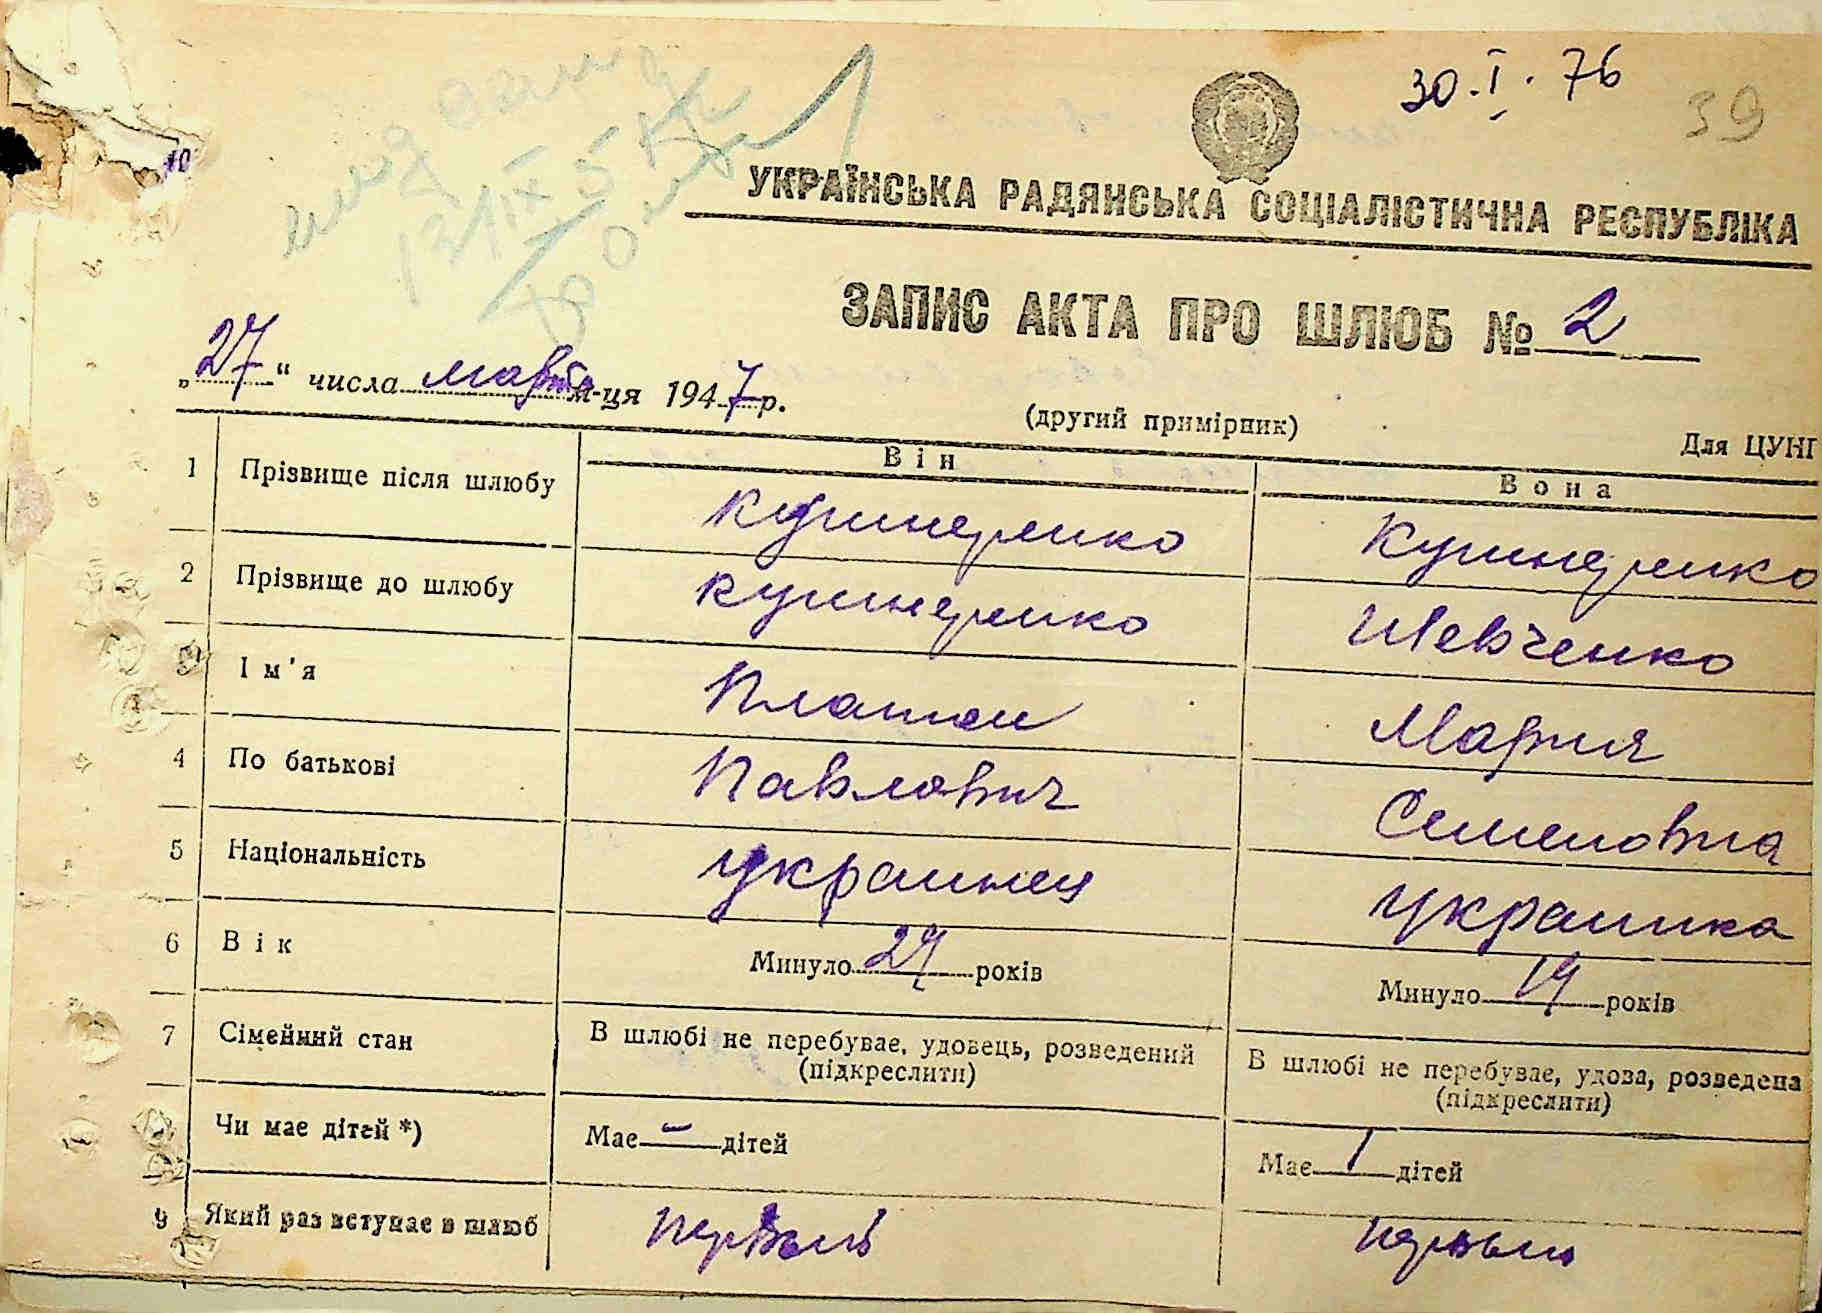 30.I.76
39
УКРАЇНСЬКА РАДЯНСЬКА СОЦІАЛІСТИЧНА РЕСПУБЛІКА
ЗАПИС АКТА ПРО ШЛЮБ № 2
„27“ числа марта м-ця 1947 р.
(другий примірник)
Для ЦУНГ
Він Вона
1 Прізвище після шлюбу Кушнеренко Кушнеренко
2 Прізвище до шлюбу Кушнеренко Шевченко
3 Ім'я Платон Мария
4 По батькові Павлович Семеновна
5 Національність украинец украинка
6 Вік Минуло 29 років Минуло 19 років
7 Сімейний стан В шлюбі не перебуває, удовець, розведений (підкреслити) В шлюбі не перебуває, удова, розведена (підкреслити)
Чи має дітей *) Має – дітей Має 1 дітей
9 Який раз вступає в шлюб первый первый